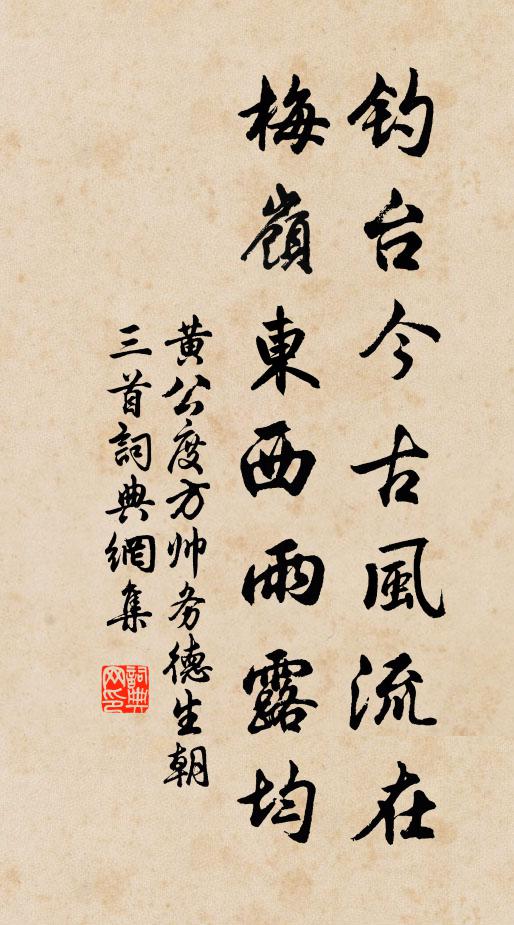 钓台今古風流在
梅嶺東西雨露均
黄公度方帅务德生朝
三首詞典網集
詞典
网印